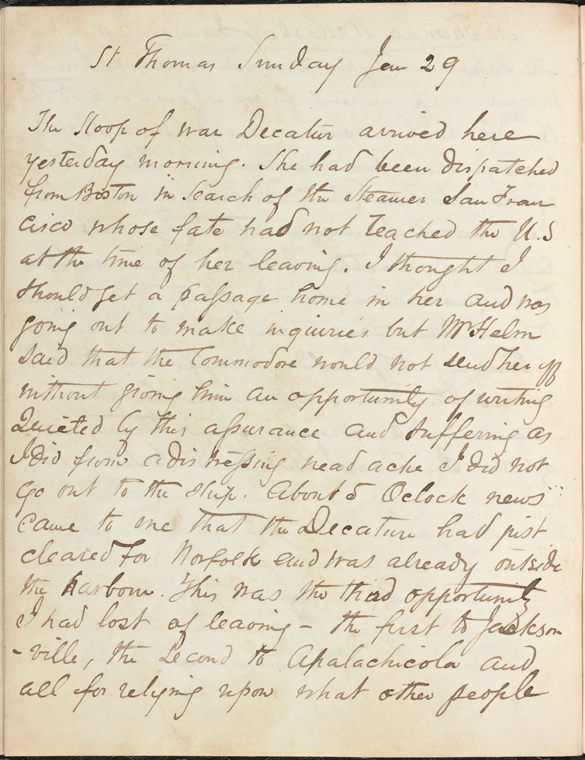 St Thomas Sunday Jan 29
The Sloop of war Decatur arrived here
yesterday morning. She had been dispatched
from Boston in Search of the Steamer San Fran
cisco whose fate had not reached the U.S
at the time of her leaving. I thought I
should get a passage home in her and was
going out to make inquiries but Mr Helm
said that the Commodore would not send her off
without giving him an opportunity of writing
Quieted by this assurance and suffering as
I did from a distressing head ache I did not
go out to the ship. About 5 Oclock news
came to me that the Decature had just
cleared for Norfolk and was already outside
the harbour. This was the third opportunity
I had lost of leaving – the first to Jackson
-ville, the second to Apalachicola and
all for relying upon what other people